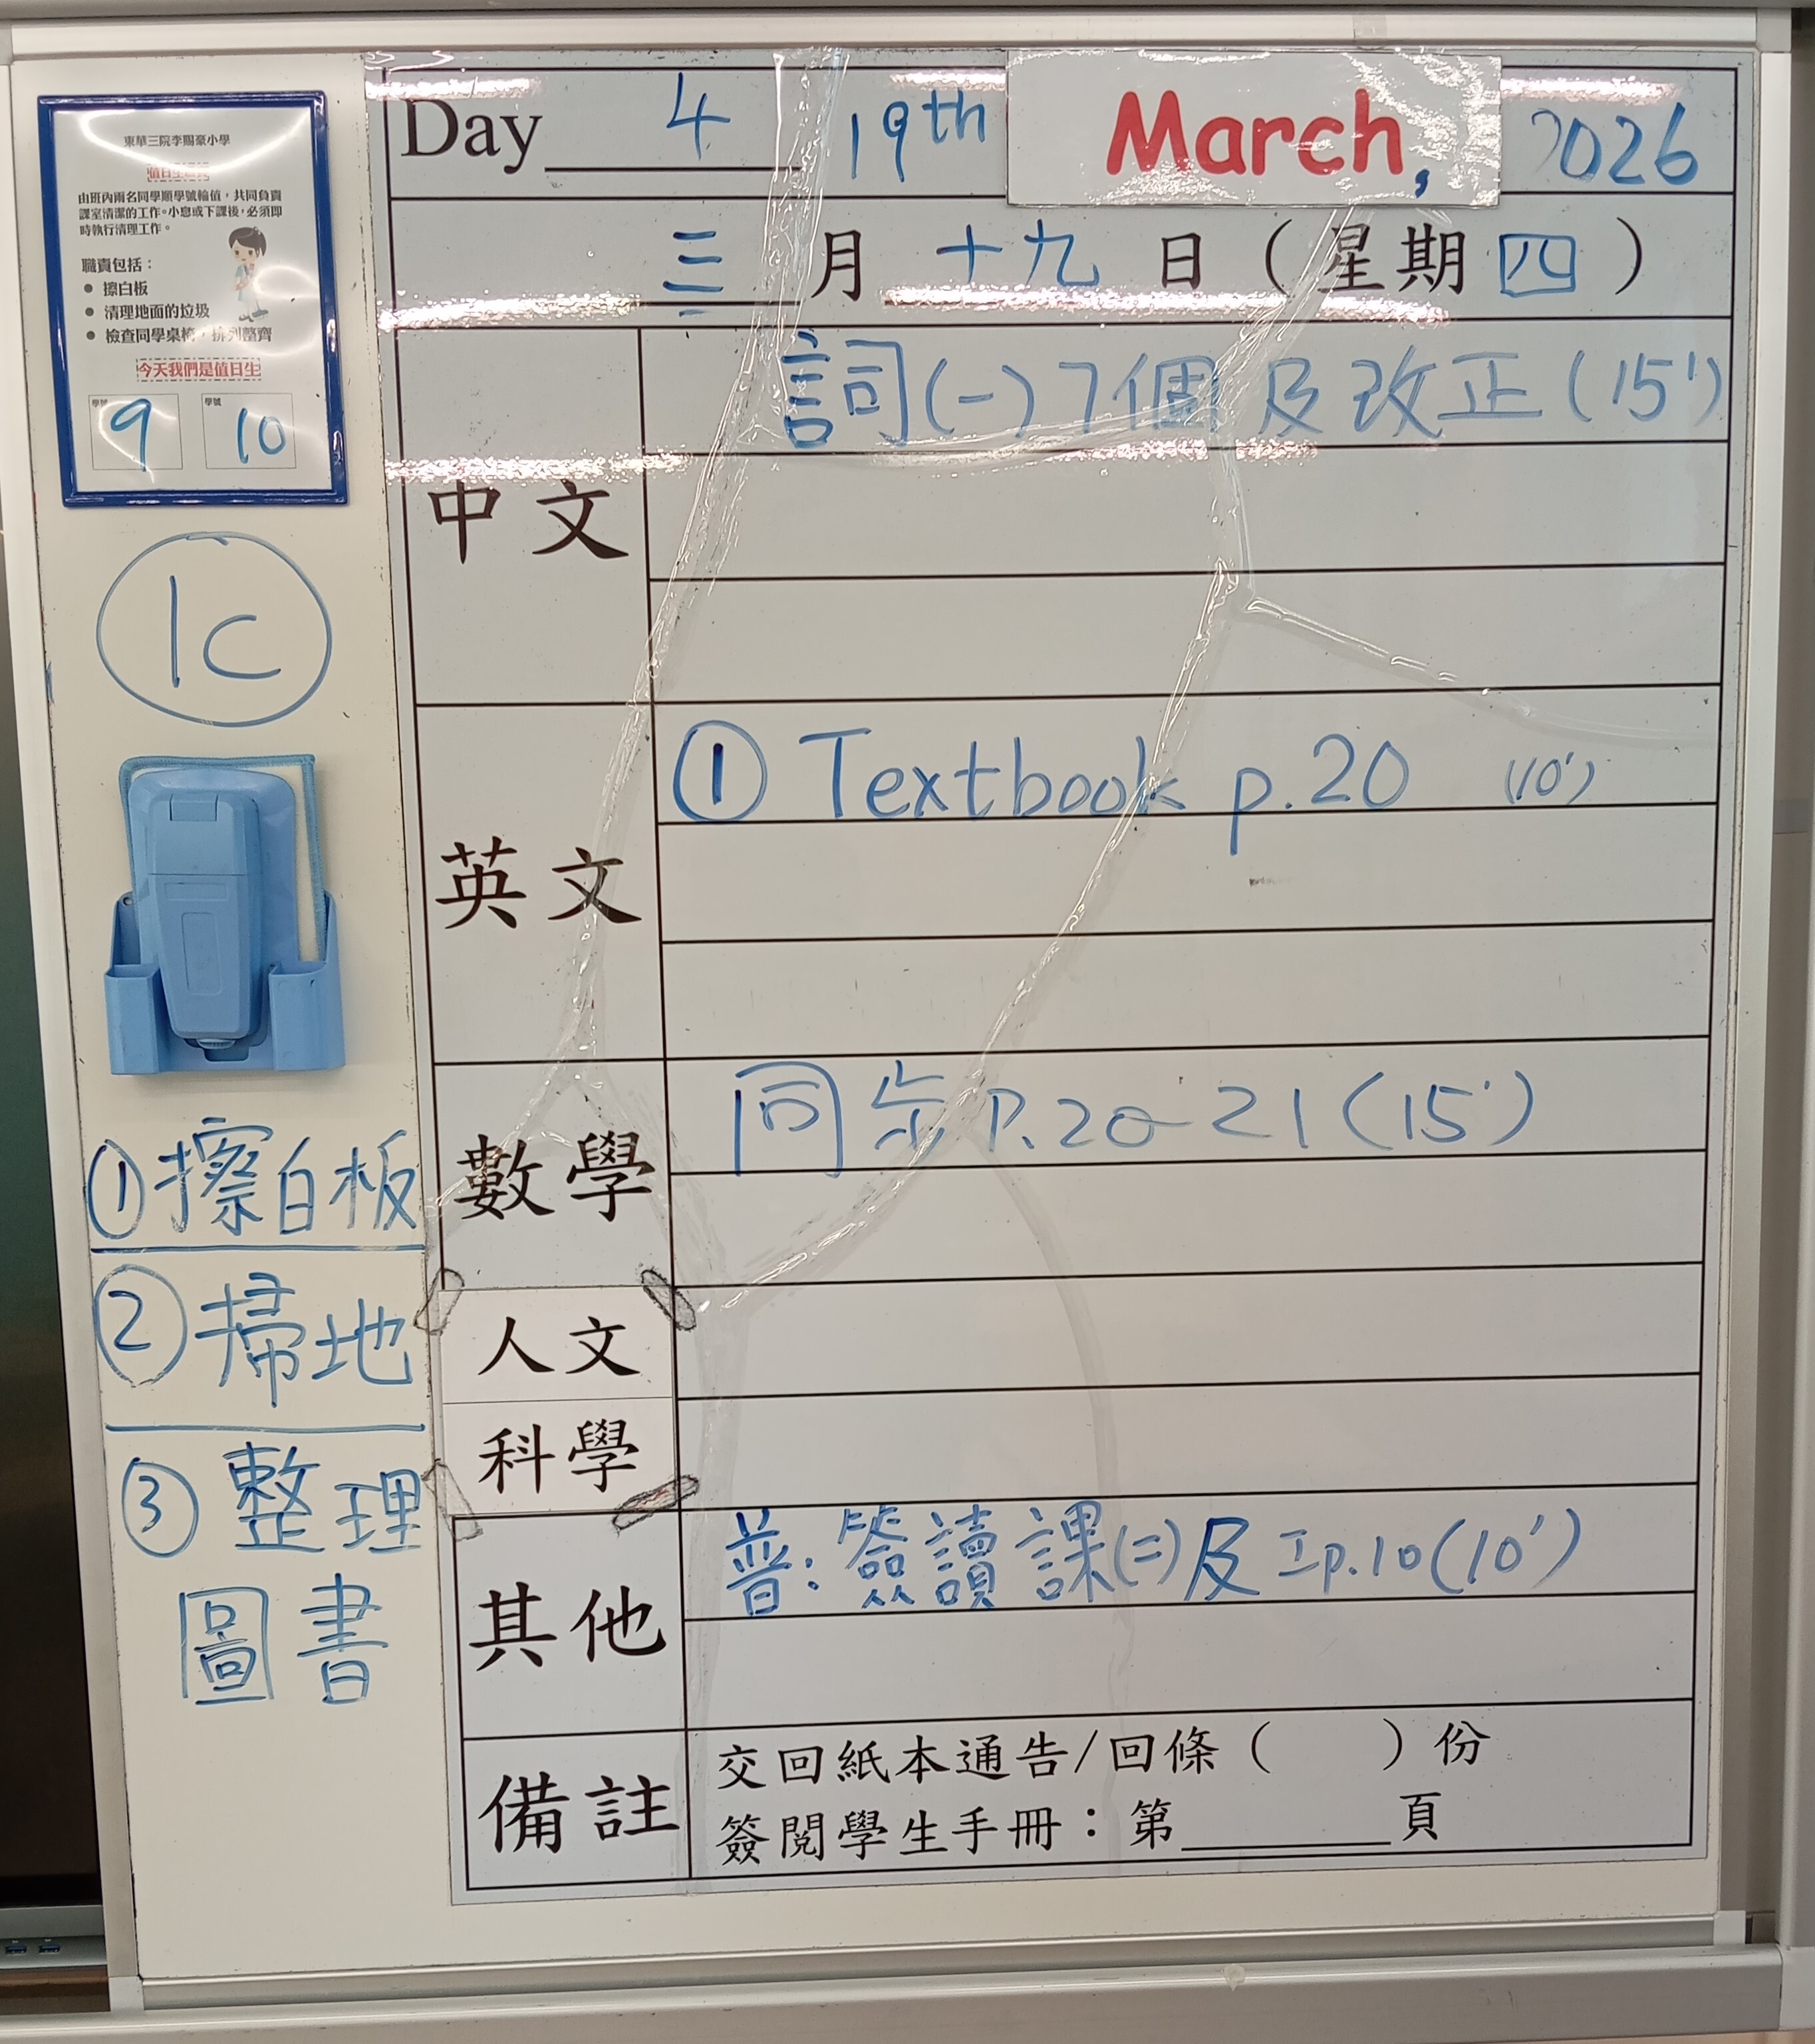 東華三院李賜豪小學
值日生職責
由班內兩名同學順學號輪值，共同負責
課室清潔的工作。小息或下課後，必須即
時執行清理工作。
職責包括：
● 擦白板
● 清理地面的垃圾
● 檢查同學桌椅，排列整齊
今天我們是值日生
學號 9 學號 10
1C
①擦白板
②掃地
③整理
圖書
Day 4 19th March, 2026
三月十九日（星期四）
中文
詞(一)7個及改正(15')
英文
① Textbook p.20 (10')
數學
同步P.20-21(15')
人文
科學
其他
普:簽讀課(二)及工p.10(10')
備註
交回紙本通告/回條（ ）份
簽閱學生手冊：第______頁